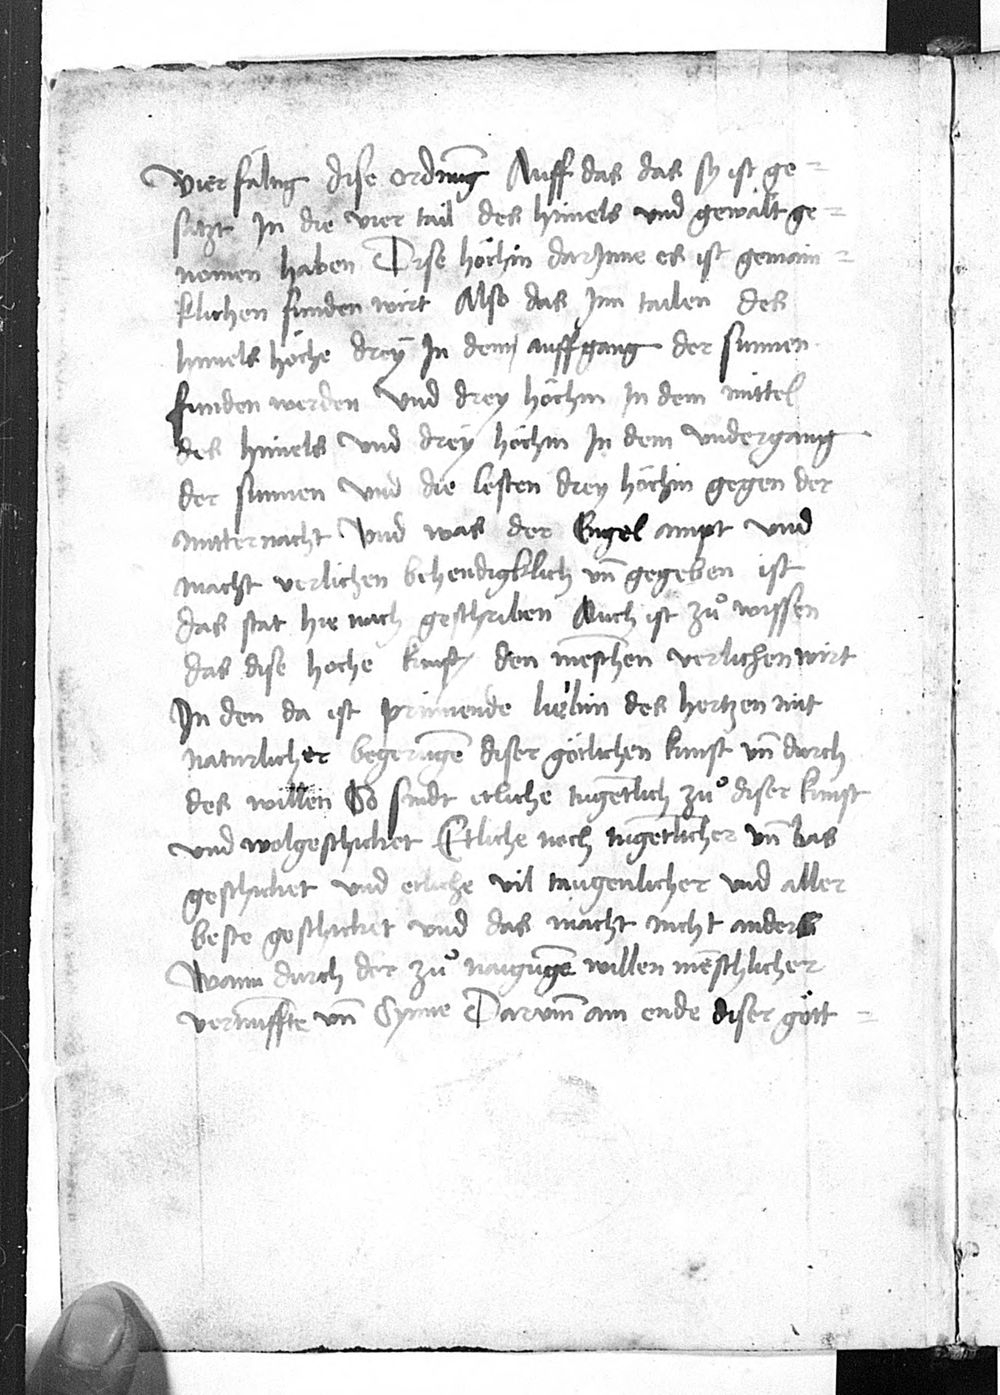 vierfaltig dise ordnu̅g Auff das das sy ist ge=
satzt In die vier tail des himels vnd gewalt ge=
nomen haben Dise höchin darInne es ist gemain=
klichen funden wirt Also das Inn tailen des
himels höche dreÿ In dem auffgang der sunnen
funden werden Vnd dreÿ höchin In dem mittel
des himels Vnd dreÿ höchin In dem vndergang
der sunnen Vnd die lesten dreÿ höchin gegen der
mitternacht Vnd was der Engel ampt vnd
macht verlichen behendigklich vn̅ gegeben ist
das stat hie nach geschriben Auch ist zuͦ wissen
das dise hoche kunst den mẽschen verlichen wirt
In den da ist prinnende des hertzen mit
naturlicher begerũge diser götlichen kunst vn̅ durch
des willen So sindt etliche tugẽtlich zuͦ diser kunst
vnd wolgeschicket Etliche noch tugẽtlicher vn̅ bas
geschicket vnd etliche vil taugenlicher vnd aller
beste geschicket vnd das macht nicht anders
Wann durch der zuͦ naigũge willen mẽschlicher
vernu̅ffte vn̅ Synne Darvm̅ am ende diser gött=